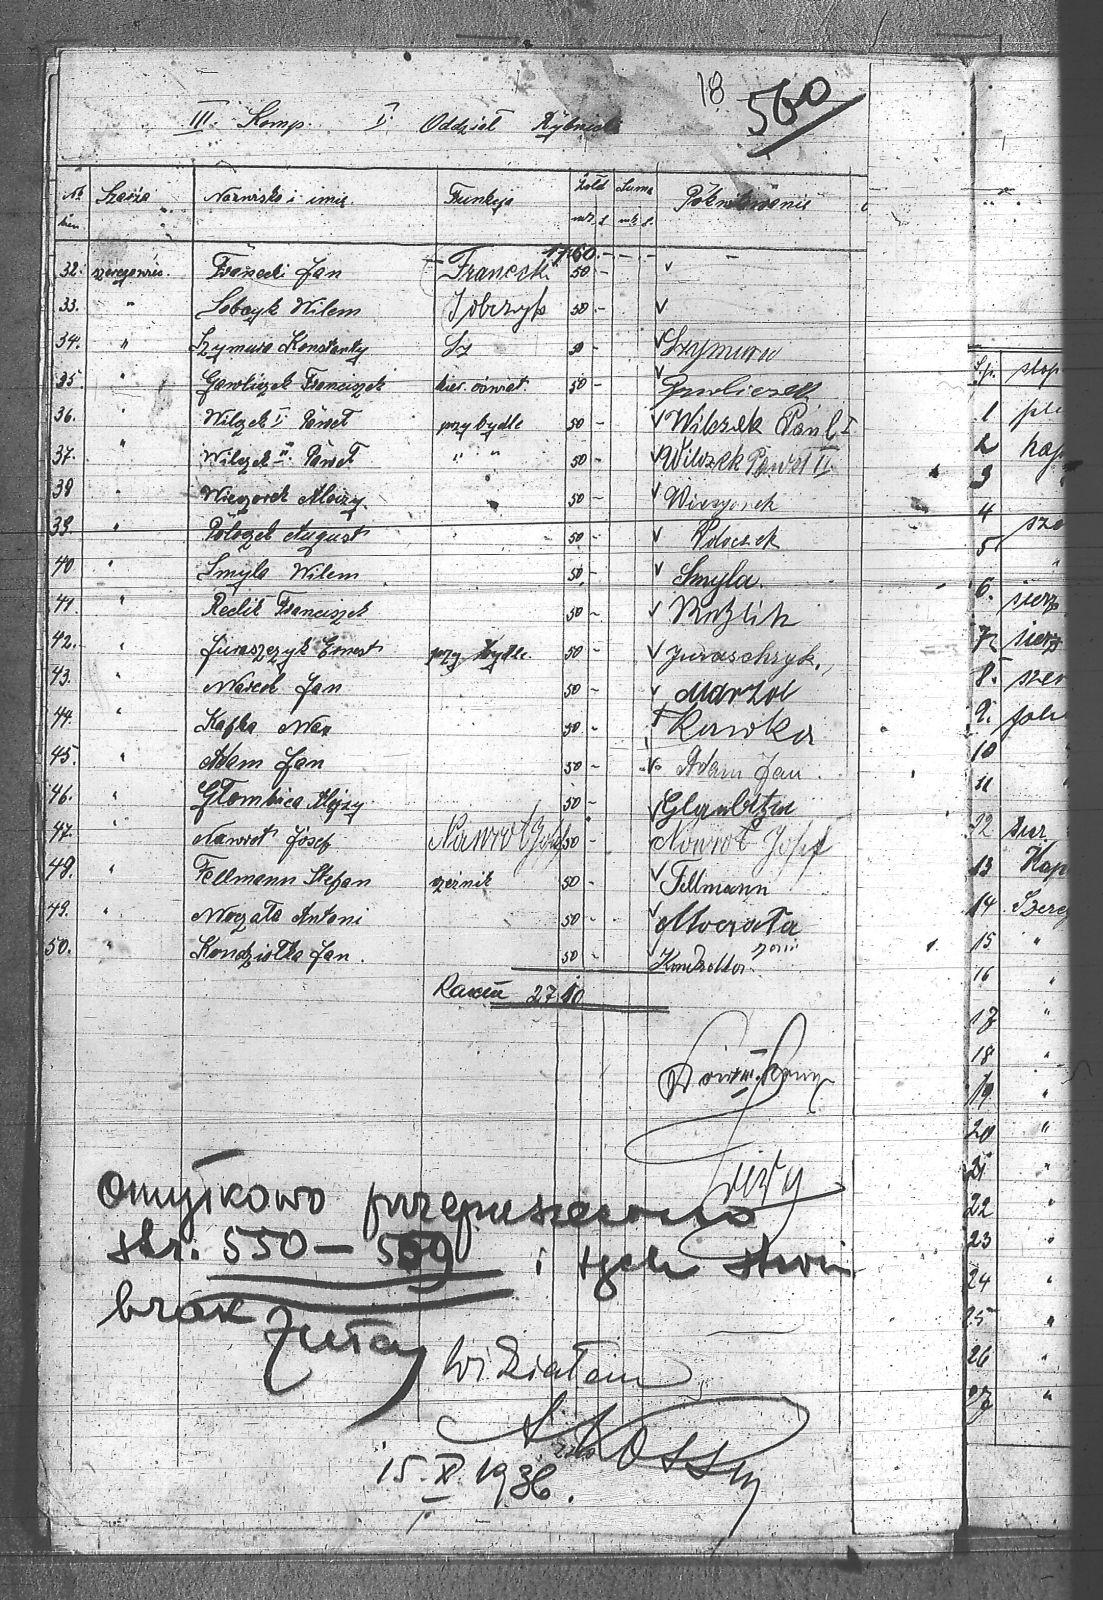 18 560
III. Komp. I. Oddział Rybnick
Nr. Szarża Nazwisko i imię Funkcja Żołd Suma Pokwitowanie
17 60 - - -
32. szeregowiec Franecki Jan Franecki 50 -
33. " Sobczyk Wilem Sobczyk 50 -
34. " Szymura Konstanty Sz 50 - Szymura
35. " Gawliczek Franciszek kier. oświat. 50 - Gawliczek
36. " Wilczek I Paweł przy bydle 50 - Wilczek Paul I
37. " Wilczek II Paweł " " 50 - Wilczek Paweł II.
38 " Wieczorek Alojzy 50 - Wieczorek
39. " Poloczek August 50 - Poloczek
40. " Smyla Wilem 50 - Smyla.
41. " Reclik Franciszek 50 -
42. " Juraszczyk Ernest przy bydle 50 - Juraschzyk.
43. " Marcol Jan 50 - Marzol
44. " Kafka Max 50 - Kawka
45. " Adam Jan 50 - Adam Jan
46. " Głombica Alojzy 50 - Glombitza
47. " Nawrot Josef Nawrot Josef 50 - Nawrot Josef
48. " Fellmann Stefan 50 - Fellmann
49. " Moczała Antoni 50 - Moczała
50. " Kondziołka Jan. 50 -
Razem 27 10
Omyłkowo przepuszczono
str. 550 - 559 i tych stron
brak
Widziałem
15. X. 1936.
1
2
3
4
5
6. sierż
7
8. szer
9.
10
11
12
13 Kap
14 Szereg
15 "
16 "
17 "
18 "
19 "
20 "
21 "
22 "
23 "
24 "
25 "
26 "
27 "